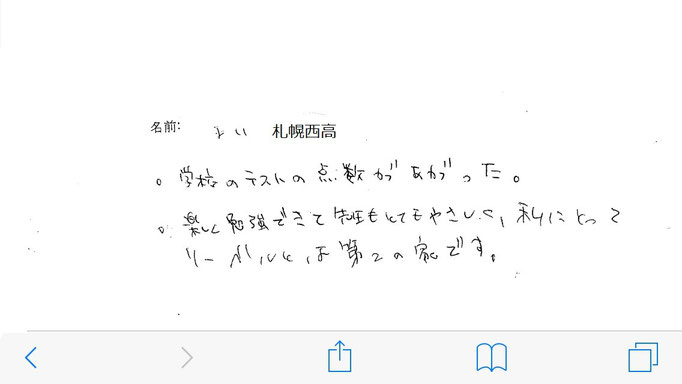 名前: 札幌西高
。学校のテストの点数があがった。
。楽しく勉強できて先生もとてもやさしく、私にとって
は第2の家です。